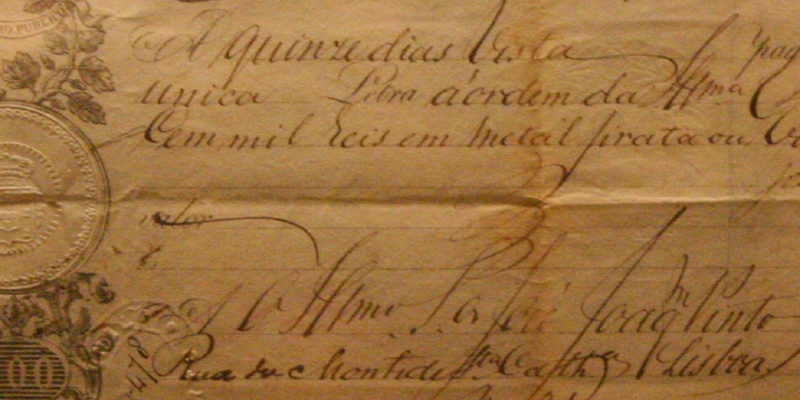 MO PUBLICO
A quinze dias Vista pag
unica Letra á ordem da Illma
Cem mil reis em metal prata ou
valor
Ao Illmo Sr José Joaqm Pinto
Rua do Monte de Sta Cathª Lisboa
00